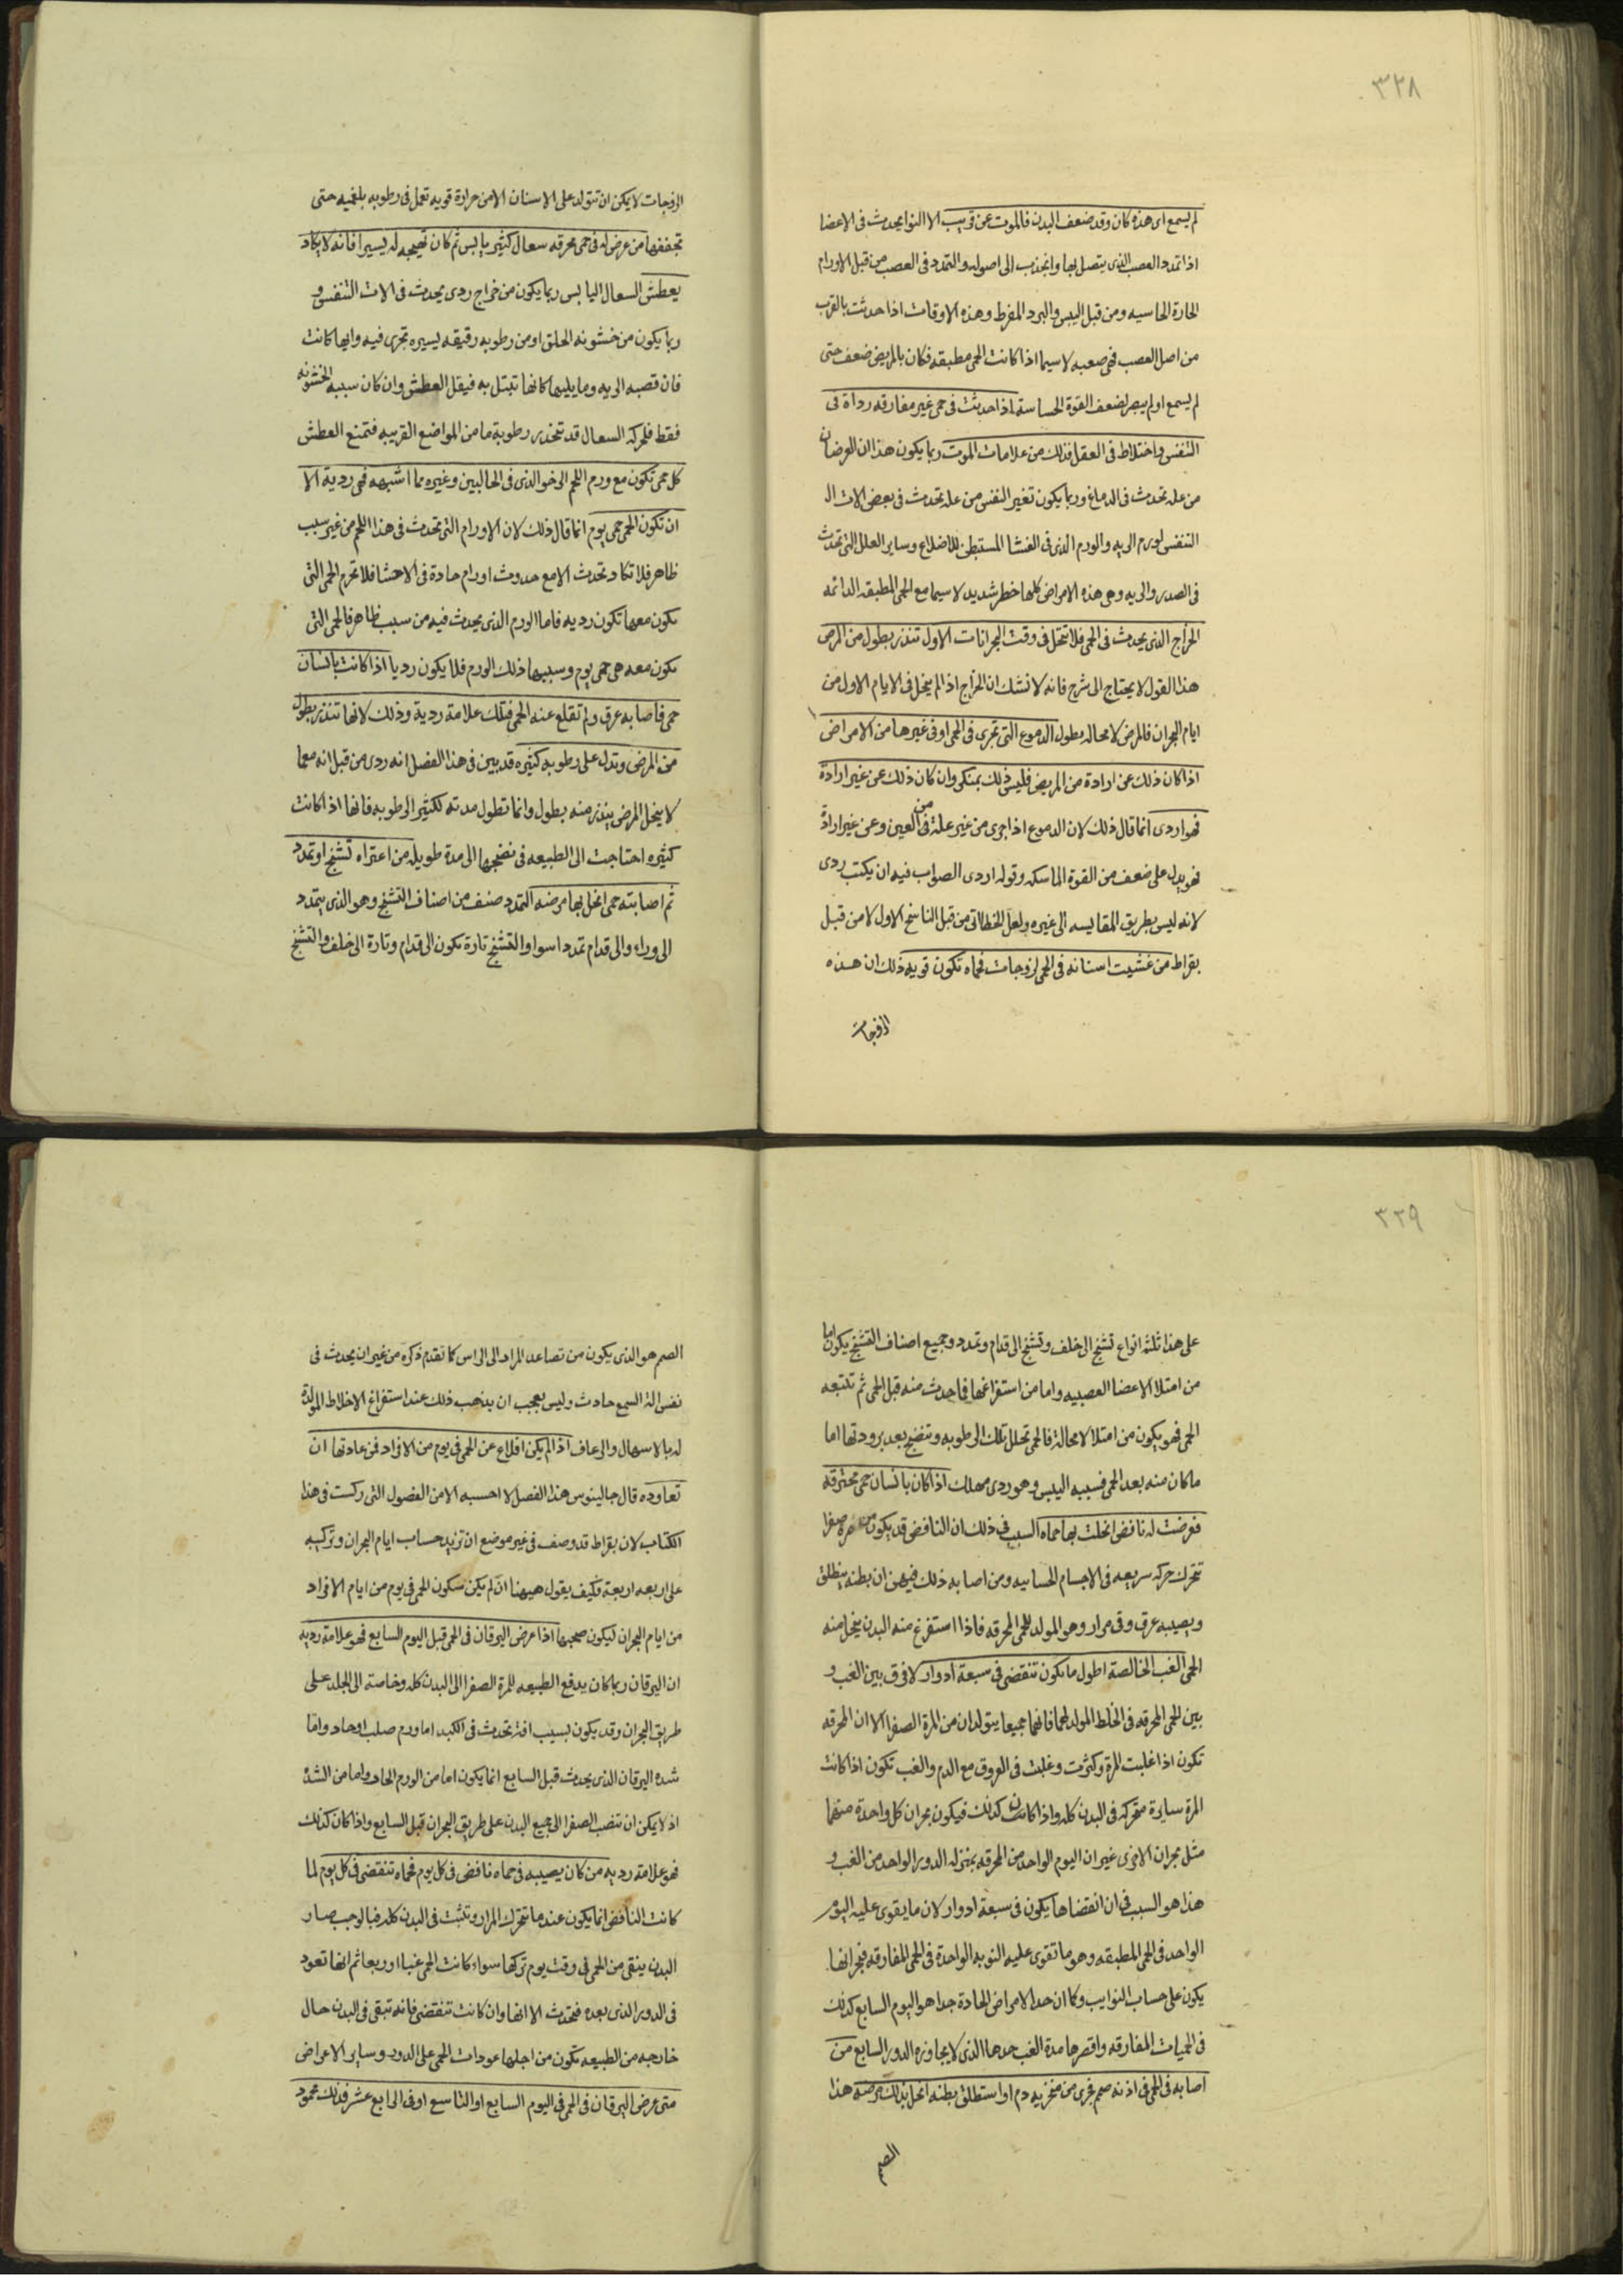 ٣٢٨
لم يسمع اى هذه كان وقد ضعف البدن فالموت عن قريب الالتوا يحدث فى الاعضا
اذا تمدد العصب الذى يتصل بها وانجذب الى اصوله والتمدد فى العصب من قبل الاورام
الحارة الحاسيه ومن قبل اليبس والبرد المفرط وهذه الاوقات اذا حدثت بالقرب
من اصل العصب فهى صعبه لاسيما اذا كانت الحمى مطبقه فكان بالمريض ضعف حتى
لم يسمع اولم يبصر لضعف القوة الحساسة اذا حدثت فى حمى غير مفارقه رداة فى
التنفس واختلاط فى العقل فذلك من علامات الموت ربما يكون هذان العرضان
من عله تحدث فى الدماغ وربما يكون تغير النفس من عله تحدث فى بعض الات ال
التنفس لورم الريه والورم الذى فى الغشا المستبطن للاضلاع وساير العلل التى تحدث
فى الصدر والريه وهى هذه الامراض كلها خطر شديد لاسيما مع الحمى المطبقه الدائمه
الخراج الذى يحدث فى الحمى فلا تنحل فى وقت البحرانات الاول تنذر بطول من المرض
هذا القول لا يحتاج الى شرح فانه لا نشك ان الخراج اذا لم ينحل فى الايام الاول من
ايام البحران فالمرض لا محاله يطول الدموع التى تجرى فى الحمى او فى غيرها من الامراض
اذا كان ذلك عن ارادة من المريض فليس ذلك بمنكر وان كان ذلك عن غير ارادة
فهو اردى انما قال ذلك لان الدموع اذا جرى من غير علة فى العين وعن غير ارادة
فهو يدل على ضعف من القوة الماسكه وقوله اردى الصواب فيه ان يكتب ردى
لانه ليس بطريق المقايسه الى غيره ولعل الخطا اتى من قبل الناسخ الاول لا من قبل
بقراط من غشيت اسنانه فى الحمى لزوجات فحماه تكون قويه ذلك ان هذه
الزوجات
الزوجات لا يمكن ان تتولد على الاسنان الا من حرارة قويه تعمل فى رطوبه بلغميه حتى
تجففها من عرض له فى حمى محرقه سعال كثير يابس ثم كان تهيجه له يسيرا فانه لا يكاد
يعطش السعال اليابس ربما يكون من خراج ردى يحدث فى الات التنفس و
ربما يكون من خشونه الحلق او من رطوبه رقيقه يسيره تجرى فيه وايها كانت
فان قصبه الريه وما يليها كانها تبتل به فيقل العطش وان كان سببه الخشونه
فقط فلحركه السعال قد تنحدر رطوبة ما من المواضع القريبه فتمنع العطش
كل حمى تكون مع ورم اللحم الرخو الذى فى الحالبين وغيره مما اشبهه فهى ردية الا
ان تكون الحمى حمى يوم انما قال ذلك لان الاورام التى تحدث فى هذا اللحم من غير سبب
ظاهر فلا تكاد تحدث الا مع حدوث اورام حادة فى الاحشا فلا تجرم الحمى التى
تكون معها تكون رديه فاما الورم الذى يحدث فيه من سبب ظاهر فالحمى التى
تكون معه هى حمى يوم وسببها ذلك الورم فلا يكون رديا اذا كانت بانسان
حمى فاصابه عرق ولم تقلع عنه الحمى فتلك علامة ردية وذلك لانها تنذر بطول
من المرض وتدل على رطوبه كثيره قد بين فى هذا الفصل انه ردى من قبل انه معما
لا ينحل المرض ينذر منه بطول وانما تطول مدته لكثير الرطوبه فانها اذا كانت
كثيره احتاجت الى الطبيعه فى نضجها الى مدة طويله من اعتراه تشنج او تمدد
ثم اصابته حمى انحل بها مرضه التمدد صنف من اصناف التشنج وهو الذى يتمدد
الى وراء والى قدام تمددا سواا والتشنج تارة يكون الى قدام وتارة الى خلف والتشنج
٣٢٩
على هذا ثلثة انواع تشنج الى خلف وتشنج الى قدام وتمدد وجميع اصناف التشنج يكون اما
من امتلا الاعضا العصبيه واما من استفراغها فما حدث منه قبل الحمى ثم تتبعه
الحمى فهو يكون من امتلا لا محالة فالحمى تحلل تلك الرطوبه وتنضج بعد برودتها اما
ما كان منه بعد الحمى فسببه اليبس وهو ردى مهلك اذا كان بانسان حمى محترقه
فعرضت له نافض انحلت بها حماه السبب فى ذلك ان النافض قد يكون من مرة صفرا
تتحرك حركه سريعه فى الاجسام الحساسيه ومن اصابه ذلك فيهن ان بطنه ينطلق
ويصيبه عرق وقى مرار وهو المولد للحمى المحرقه فاذا استفرغ منه البدن ينحل منه
الحمى الغب الخالصة اطول ما تكون تنقضى فى سبعة ادوار لا فرق بين الغب و
بين الحمى المحرقه فى الخلط المولد لهما فانهما جميعا يتولدان من المرة الصفرا الا ان المحرقه
تكون اذا غلبت المرة وكثرت وغلبت فى العروق مع الدم والغب تكون اذا كانت
المرة سايرة متحركه فى البدن كله واذا كانتا كذلك فيكون بحران كل واحدة منهما
مثل بحران الاخرى غير ان اليوم الواحد من المحرقه بمنزله الدور الواحد من الغب و
هذا هو السبب فى ان انقضاها يكون فى سبعة ادوار لان ما يقوى عليه اليوم
الواحد فى الحمى المطبقه وهو ما تقوى عليه النوبه الواحدة فى الحمى المفارقه فبحرانها
يكون على حساب النوايب وكما ان حد الامراض الحادة جدا هو اليوم السابع كذلك
فى الحميات المفارقه واقصرها مدة الغب حدها الذى لا يجاوزه الدور السابع من
اصابه فى الحمى فى اذنه صمم فجرى من منخريه دم او استطلق بطنه انحل بذلك مرضه هذا
الصمم
الصمم هو الذى يكون من تصاعد المرار الى الراس كما تقدم ذكره من غير ان يحدث فى
نفس الة السمع حادث وليس بعجب ان يذهب ذلك عند استفراغ الاخلاط المولدة
له بالاسهال والرعاف اذا لم يكن اقلاع عن الحمى فى يوم من الافراد فمن عادتها ان
تعاوده قال جالينوس هذا الفصل لا احسبه الا من الفصول التى ركست فى هذا
الكتاب لان بقراط قد وصف فى غير موضع ان تزيد حساب ايام البحران وتركيبه
على اربعه اربعة فكيف يقول هيهنا ان لم يكن سكون الحمى فى يوم من ايام الافراد
من ايام البحران ليكون صحيحا اذا عرض اليرقان فى الحمى قبل اليوم السابع فهو علامة رديه
ان اليرقان ربما كان يدفع الطبيعه للمرة الصفرا الى البدن كله وخاصته الى الجلد على
طريق البحران وقد يكون بسبب افة تحدث فى الكبد اما ورم صلب او حار واما
شده اليرقان الذى يحدث قبل السابع انما يكون اما من الورم الحاد واما من الشدة
اذ لا يمكن ان تنصب الصفرا الى جميع البدن على طريق البحران قبل السابع واذا كان كذلك
فهو علامة رديه من كان يصيبه فى حماه نافض فى كل يوم فحماه تنقضى فى كل يوم لما
كانت النافض انما يكون عندما تتحرك المرار وتثبت فى البدن كله فبالوجب صار
البدن ينقى من الحمى فى وقت يوم تركها سواء كانت الحمى غبا او ربعا ثم انها تعود
فى الدور الذى بعده فتحدث الا انها وان كانت تنقضى فانه تبقى فى البدن حال
خارجه من الطبيعه تكون من اجلها عودات الحمى على الدور وساير الاعراض
متى عرض اليرقان فى الحمى فى اليوم السابع او التاسع او فى الرابع عشر فذلك محمود